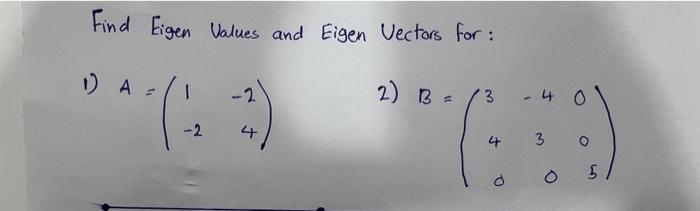 Find Eigen Values and Eigen Vectors for :
1) A = ( 1 -2 ) 2) B = ( 3 - 4 0 )
-2 4 4 3 0
0 0 5